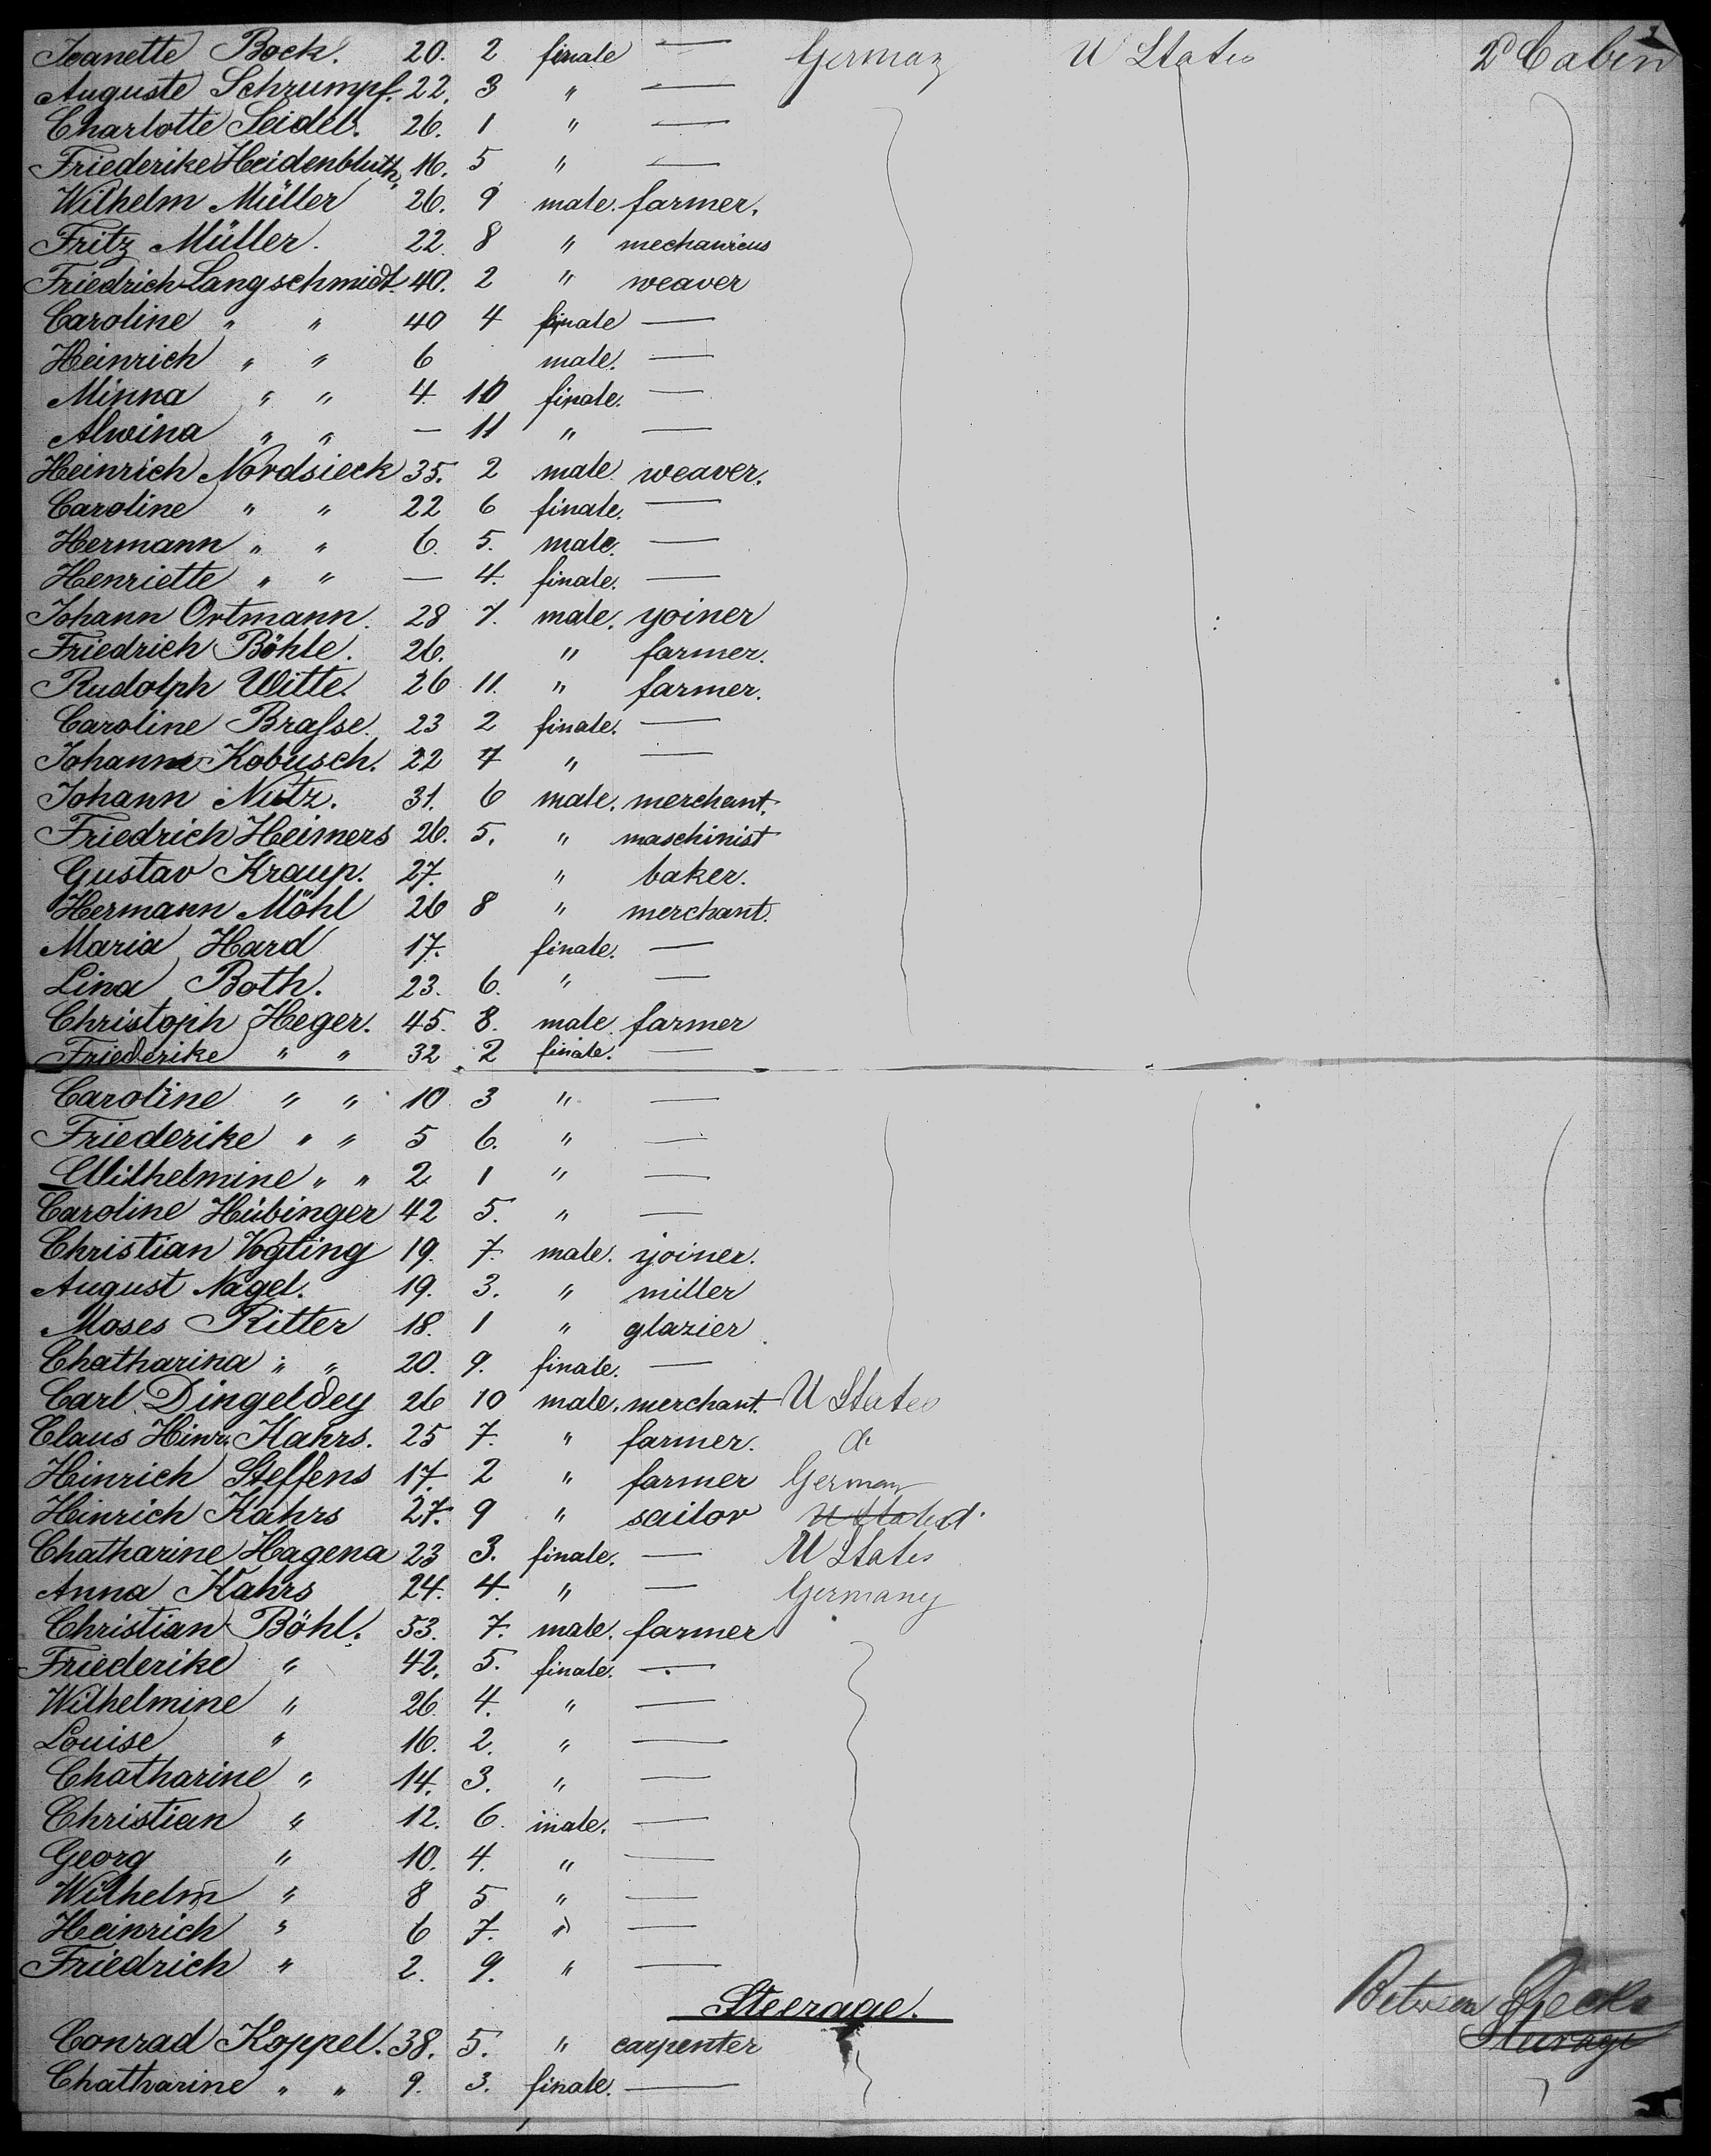 Jeanette Bock. 20. 2 finale — Germany U States 2d Cabin
Auguste Schrumpf. 22. 3 " —
Charlotte Seidel. 26. 1 " —
Friederike Heidenbluth, 16. 5 " —
Wilhelm Müller 26. 9 male. farmer.
Fritz Müller. 22. 8 " mechanicus
Friedrich Langschmidt. 40. 2 " weaver
Caroline " " 40 4 finale —
Heinrich " " 6 male. —
Minna " " 4. 10 finale. —
Alwina " " — 11 " —
Heinrich Nordsieck 35. 2 male. weaver.
Caroline " " 22 6 finale. —
Hermann " " 6. 5. male. —
Henriette " " — 4. finale. —
Johann Ortmann. 28 7. male. yoiner
Friedrich Böhle. 26. " farmer.
Rudolph Witte. 26 11. " farmer.
Caroline Braſse. 23 2 finale. —
Johanne Kobusch. 22 7 " —
Johann Nutz. 31. 6 male. merchant.
Friedrich Heimers 26. 5. " maschinist
Gustav Kraup. 27. " baker.
Hermann Möhl 26 8 " merchant.
Maria Hard 17. finale. —
Lina Both. 23. 6. " —
Christoph Heger. 45. 8. male. farmer
Friederike " " 32 2 finale. —
Caroline " " 10 3 " —
Friederike " " 5 6. " —
Wilhelmine " " 2 1 " —
Caroline Hübinger 42 5. " —
Christian Vogting 19. 7. male. yoiner.
August Nagel. 19. 3. " miller
Moses Ritter 18. 1 " glazier
Chatharina " " 20. 9. finale. —
Carl Dingeldey 26 10 male. merchant. U States
Claus Hinr. Kahrs. 25 7. " farmer.
Hinrich Steffens 17. 2 " farmer German
Heinrich Kahrs 27. 9 " sailor U States
Chatharine Hagena 23 3. finale. — U States
Anna Kahrs 24. 4. " — Germany
Christian Böhl. 53. 7. male. farmer
Friederike " 42. 5. finale. —
Wilhelmine " 26. 4. " —
Louise " 16. 2. " —
Chatharine " 14. 3. " —
Christian " 12. 6. male. —
Georg " 10. 4. " —
Wilhelm " 8 5 " —
Heinrich " 6 7. " —
Friedrich " 2. 9. " —
Steerage. Between Decks
Steerage
Conrad Koppel. 38. 5. " carpenter
Chatharine " " 9. 3. finale. —